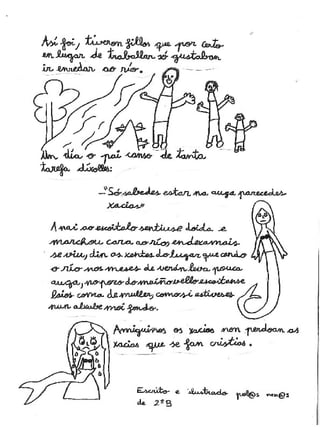 Así foi, tiveron fillos que por certo
en lugar de traballar só gustaban
ir enredar ao río.
Un día o pai canso de tanta
tarefa díxolles:
—"Só sabedes estar na auga parecedes
xacios"
A nai ao escoitalo sentiuse doída e
marchou cara ao río, endexamais
se viu, din as xentes do lugar que cando
o río nos meses de verán leva pouca
auga, no pozo do muíño vello escóitanse
laios coma de muller, como si estivese
nun aluibe moi fondo.
Amiguiños os xacios non perdoan as
xacias que se fan cristiás.
Escrito e ilustrado pol@s nen@s
de 2ºB